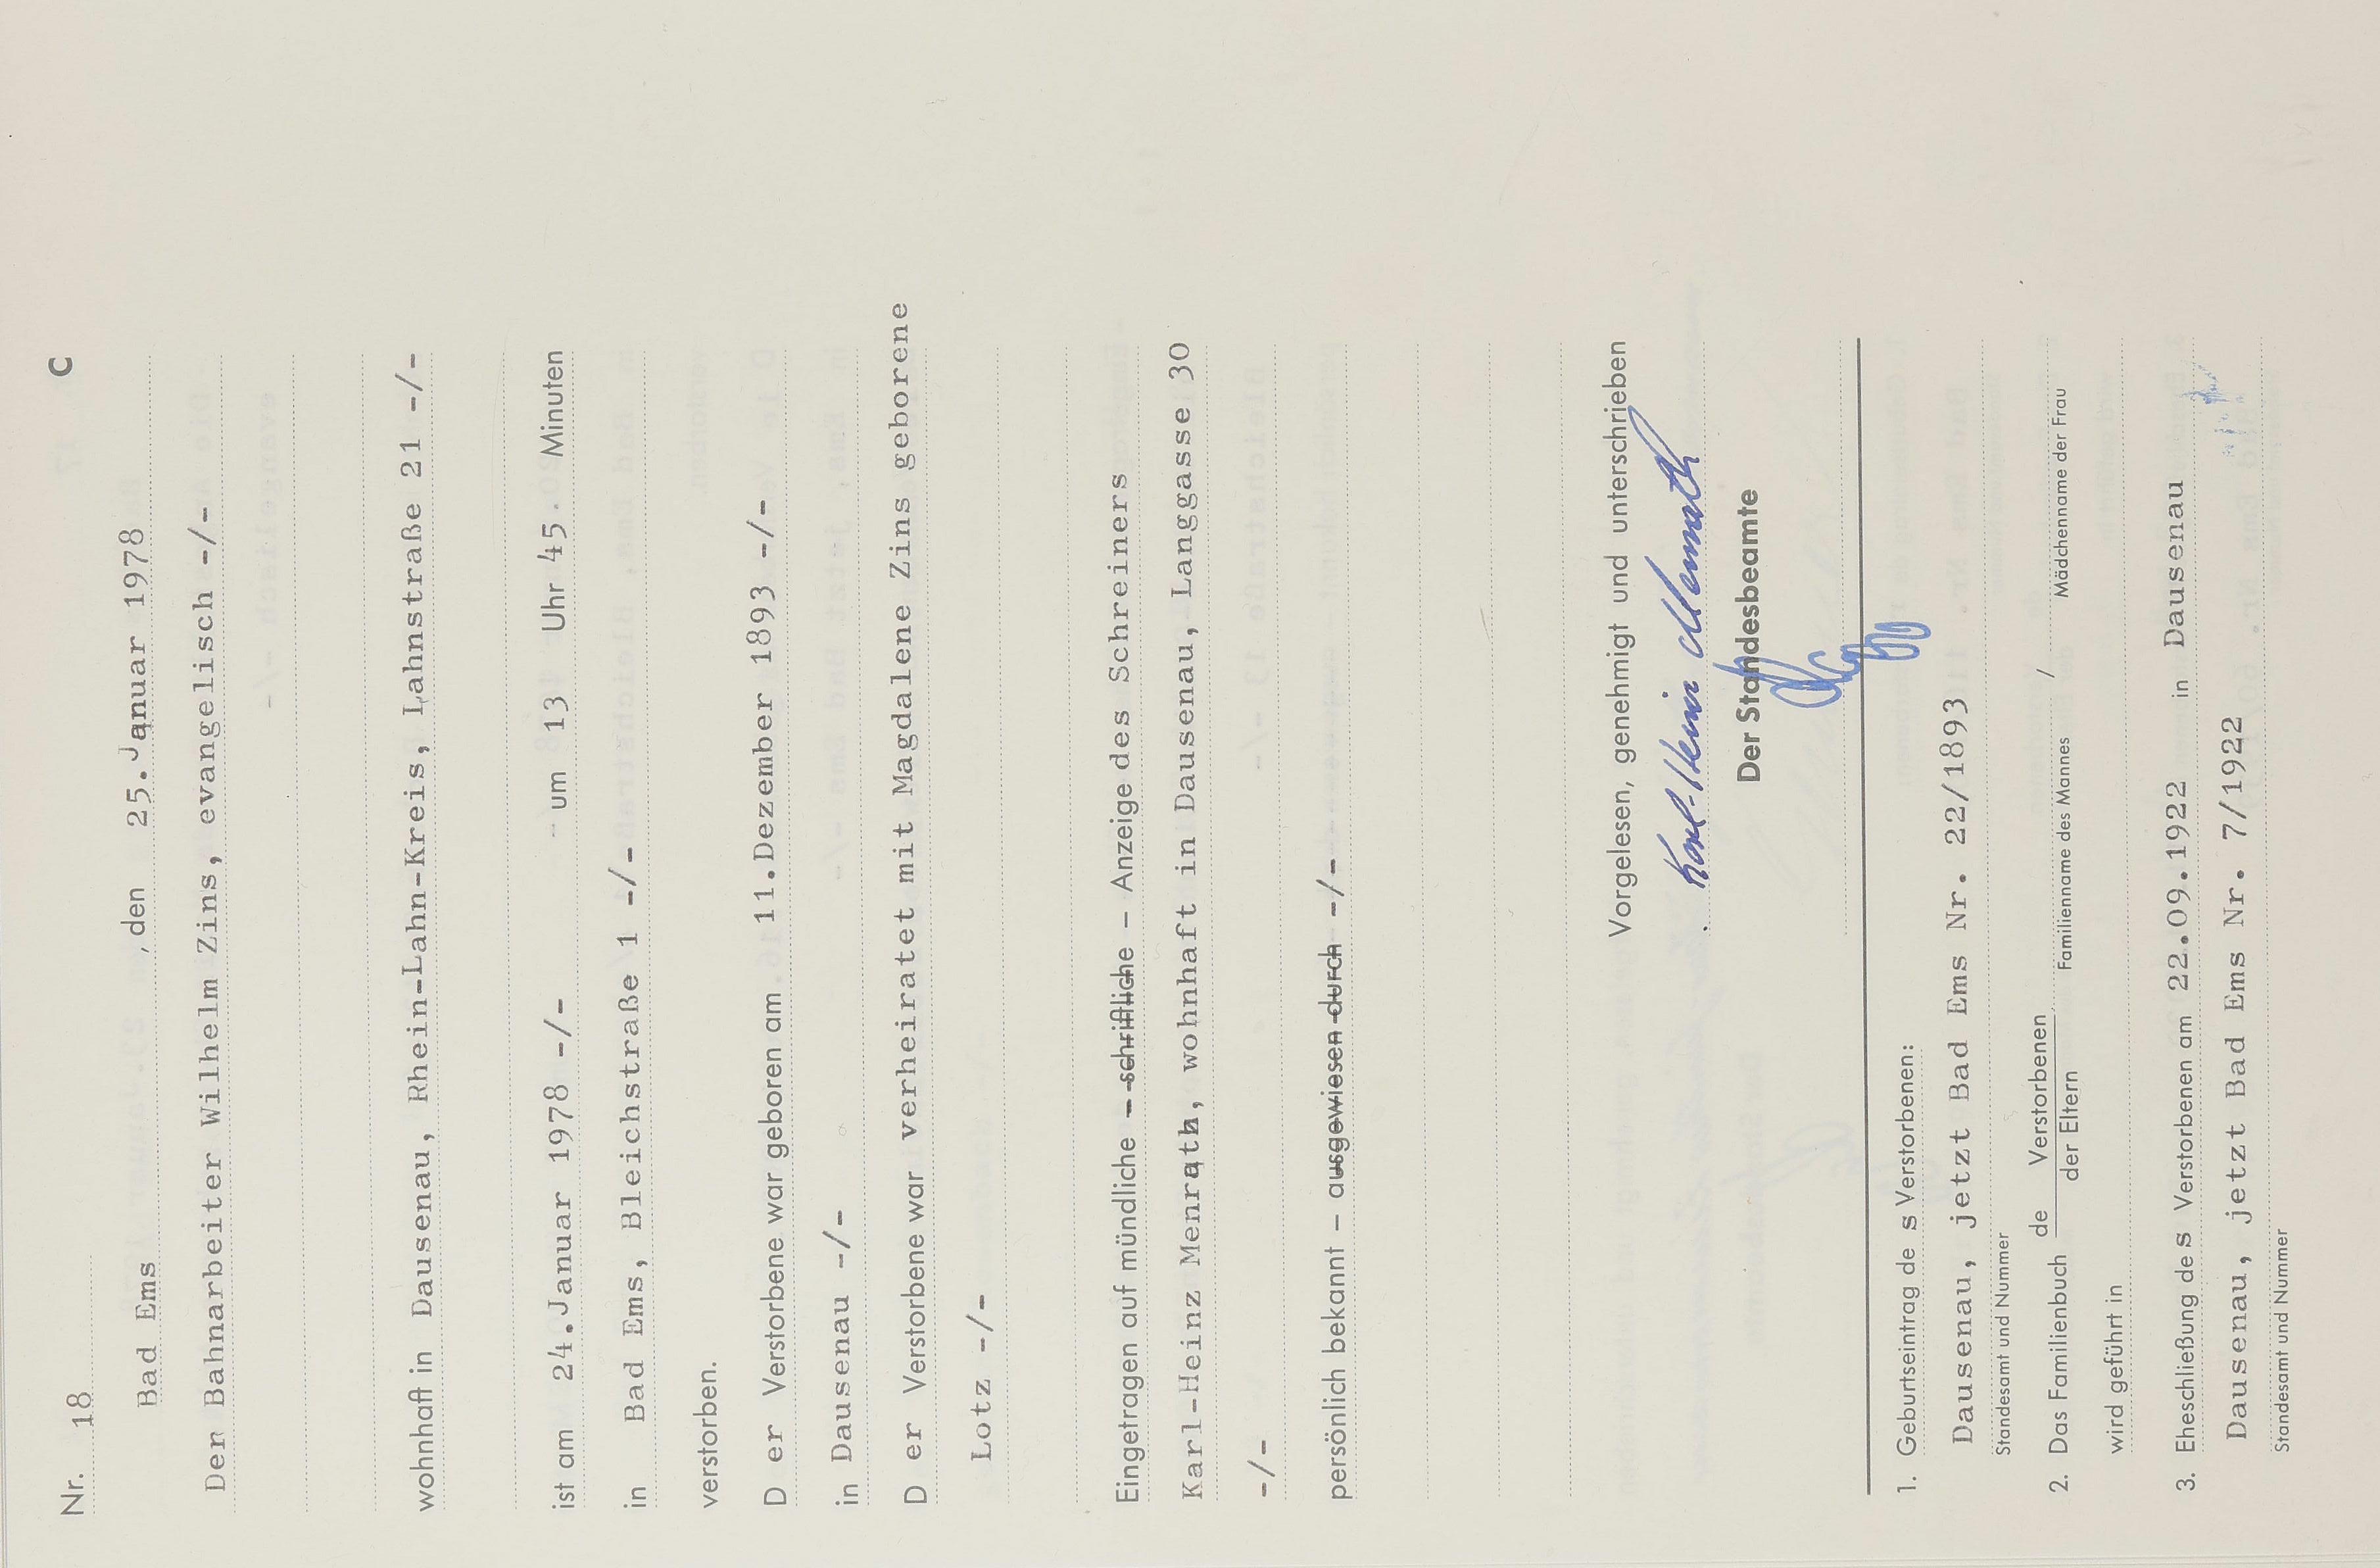 Nr. 18 C
Bad Ems , den 25.Januar 1978
Der Bahnarbeiter Wilhelm Zins, evangelisch -/-
wohnhaft in Dausenau, Rhein-Lahn-Kreis, Lahnstraße 21 -/-
ist am 24.Januar 1978 -/- um 13 Uhr 45 Minuten
in Bad Ems, Bleichstraße 1 -/-
verstorben.
D er Verstorbene war geboren am 11.Dezember 1893 -/-
in Dausenau -/-
D er Verstorbene war verheiratet mit Magdalene Zins geborene
Lotz -/-
Eingetragen auf mündliche – schriftliche – Anzeige des Schreiners
Karl-Heinz Menrath, wohnhaft in Dausenau, Langgasse 30
-/-
persönlich bekannt – ausgewiesen durch -/-
Vorgelesen, genehmigt und unterschrieben
Karl-Heinz Menrath
Der Standesbeamte
1. Geburtseintrag de s Verstorbenen:
Dausenau, jetzt Bad Ems Nr. 22/1893
Standesamt und Nummer
2. Das Familienbuch de Verstorbenen / der Eltern /
Familienname des Mannes Mädchenname der Frau
wird geführt in
3. Eheschließung de s Verstorbenen am 22.09.1922 in Dausenau
Dausenau, jetzt Bad Ems Nr. 7/1922
Standesamt und Nummer